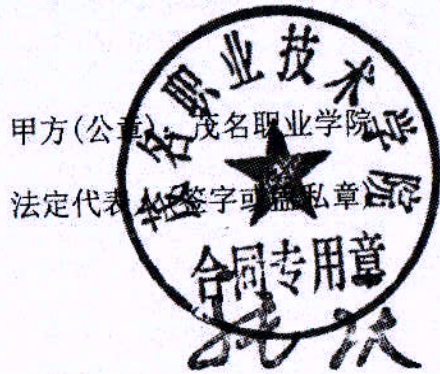 甲方(公章) 茂名职业学院
法定代表人 签字或盖私章
茂名职业技术学院
合同专用章